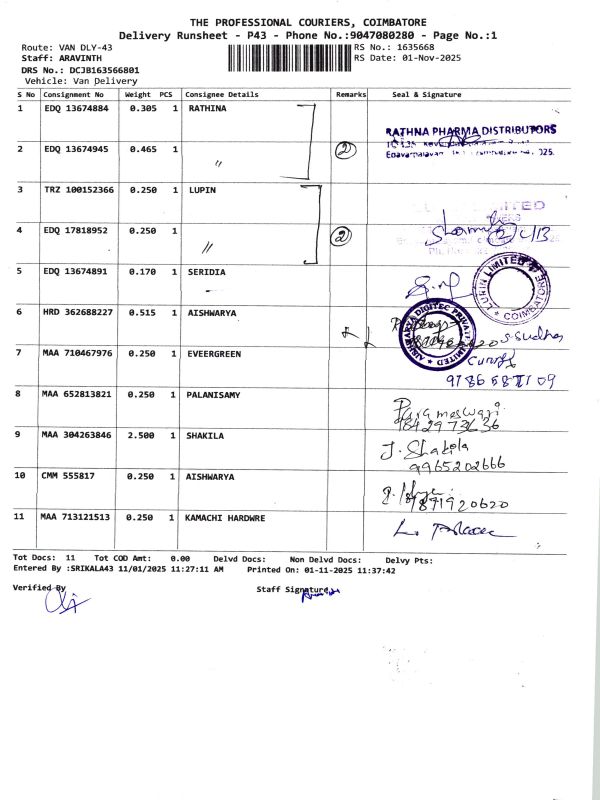 THE PROFESSIONAL COURIERS, COIMBATORE
Delivery Runsheet - P43 - Phone No.:9047080280 - Page No.:1
Route: VAN DLY-43
RS No.: 1635668
Staff: ARAVINTH
RS Date: 01-Nov-2025
DRS No.: DCJB163566801
Vehicle: Van Delivery
S No Consignment No Weight PCS Consignee Details Remarks Seal & Signature
1 EDQ 13674884 0.305 1 RATHINA
RATHNA PHARMA DISTRIBUTORS
2 EDQ 13674945 0.465 1 〃 2
3 TRZ 100152366 0.250 1 LUPIN
4 EDQ 17818952 0.250 1 〃 2
5 EDQ 13674891 0.170 1 SERIDIA
LUPIN LIMITED COIMBATORE
6 HRD 362688227 0.515 1 AISHWARYA
AISHWARYA DIGITEC PRIVATE LIMITED
7 MAA 710467976 0.250 1 EVEERGREEN
8 MAA 652813821 0.250 1 PALANISAMY
Parameswari
9 MAA 304263846 2.500 1 SHAKILA
J. Shakila
9965202666
10 CMM 555817 0.250 1 AISHWARYA
11 MAA 713121513 0.250 1 KAMACHI HARDWRE
Tot Docs: 11 Tot COD Amt: 0.00 Delvd Docs: Non Delvd Docs: Delvy Pts:
Entered By :SRIKALA43 11/01/2025 11:27:11 AM Printed On: 01-11-2025 11:37:42
Verified By
Staff Signature